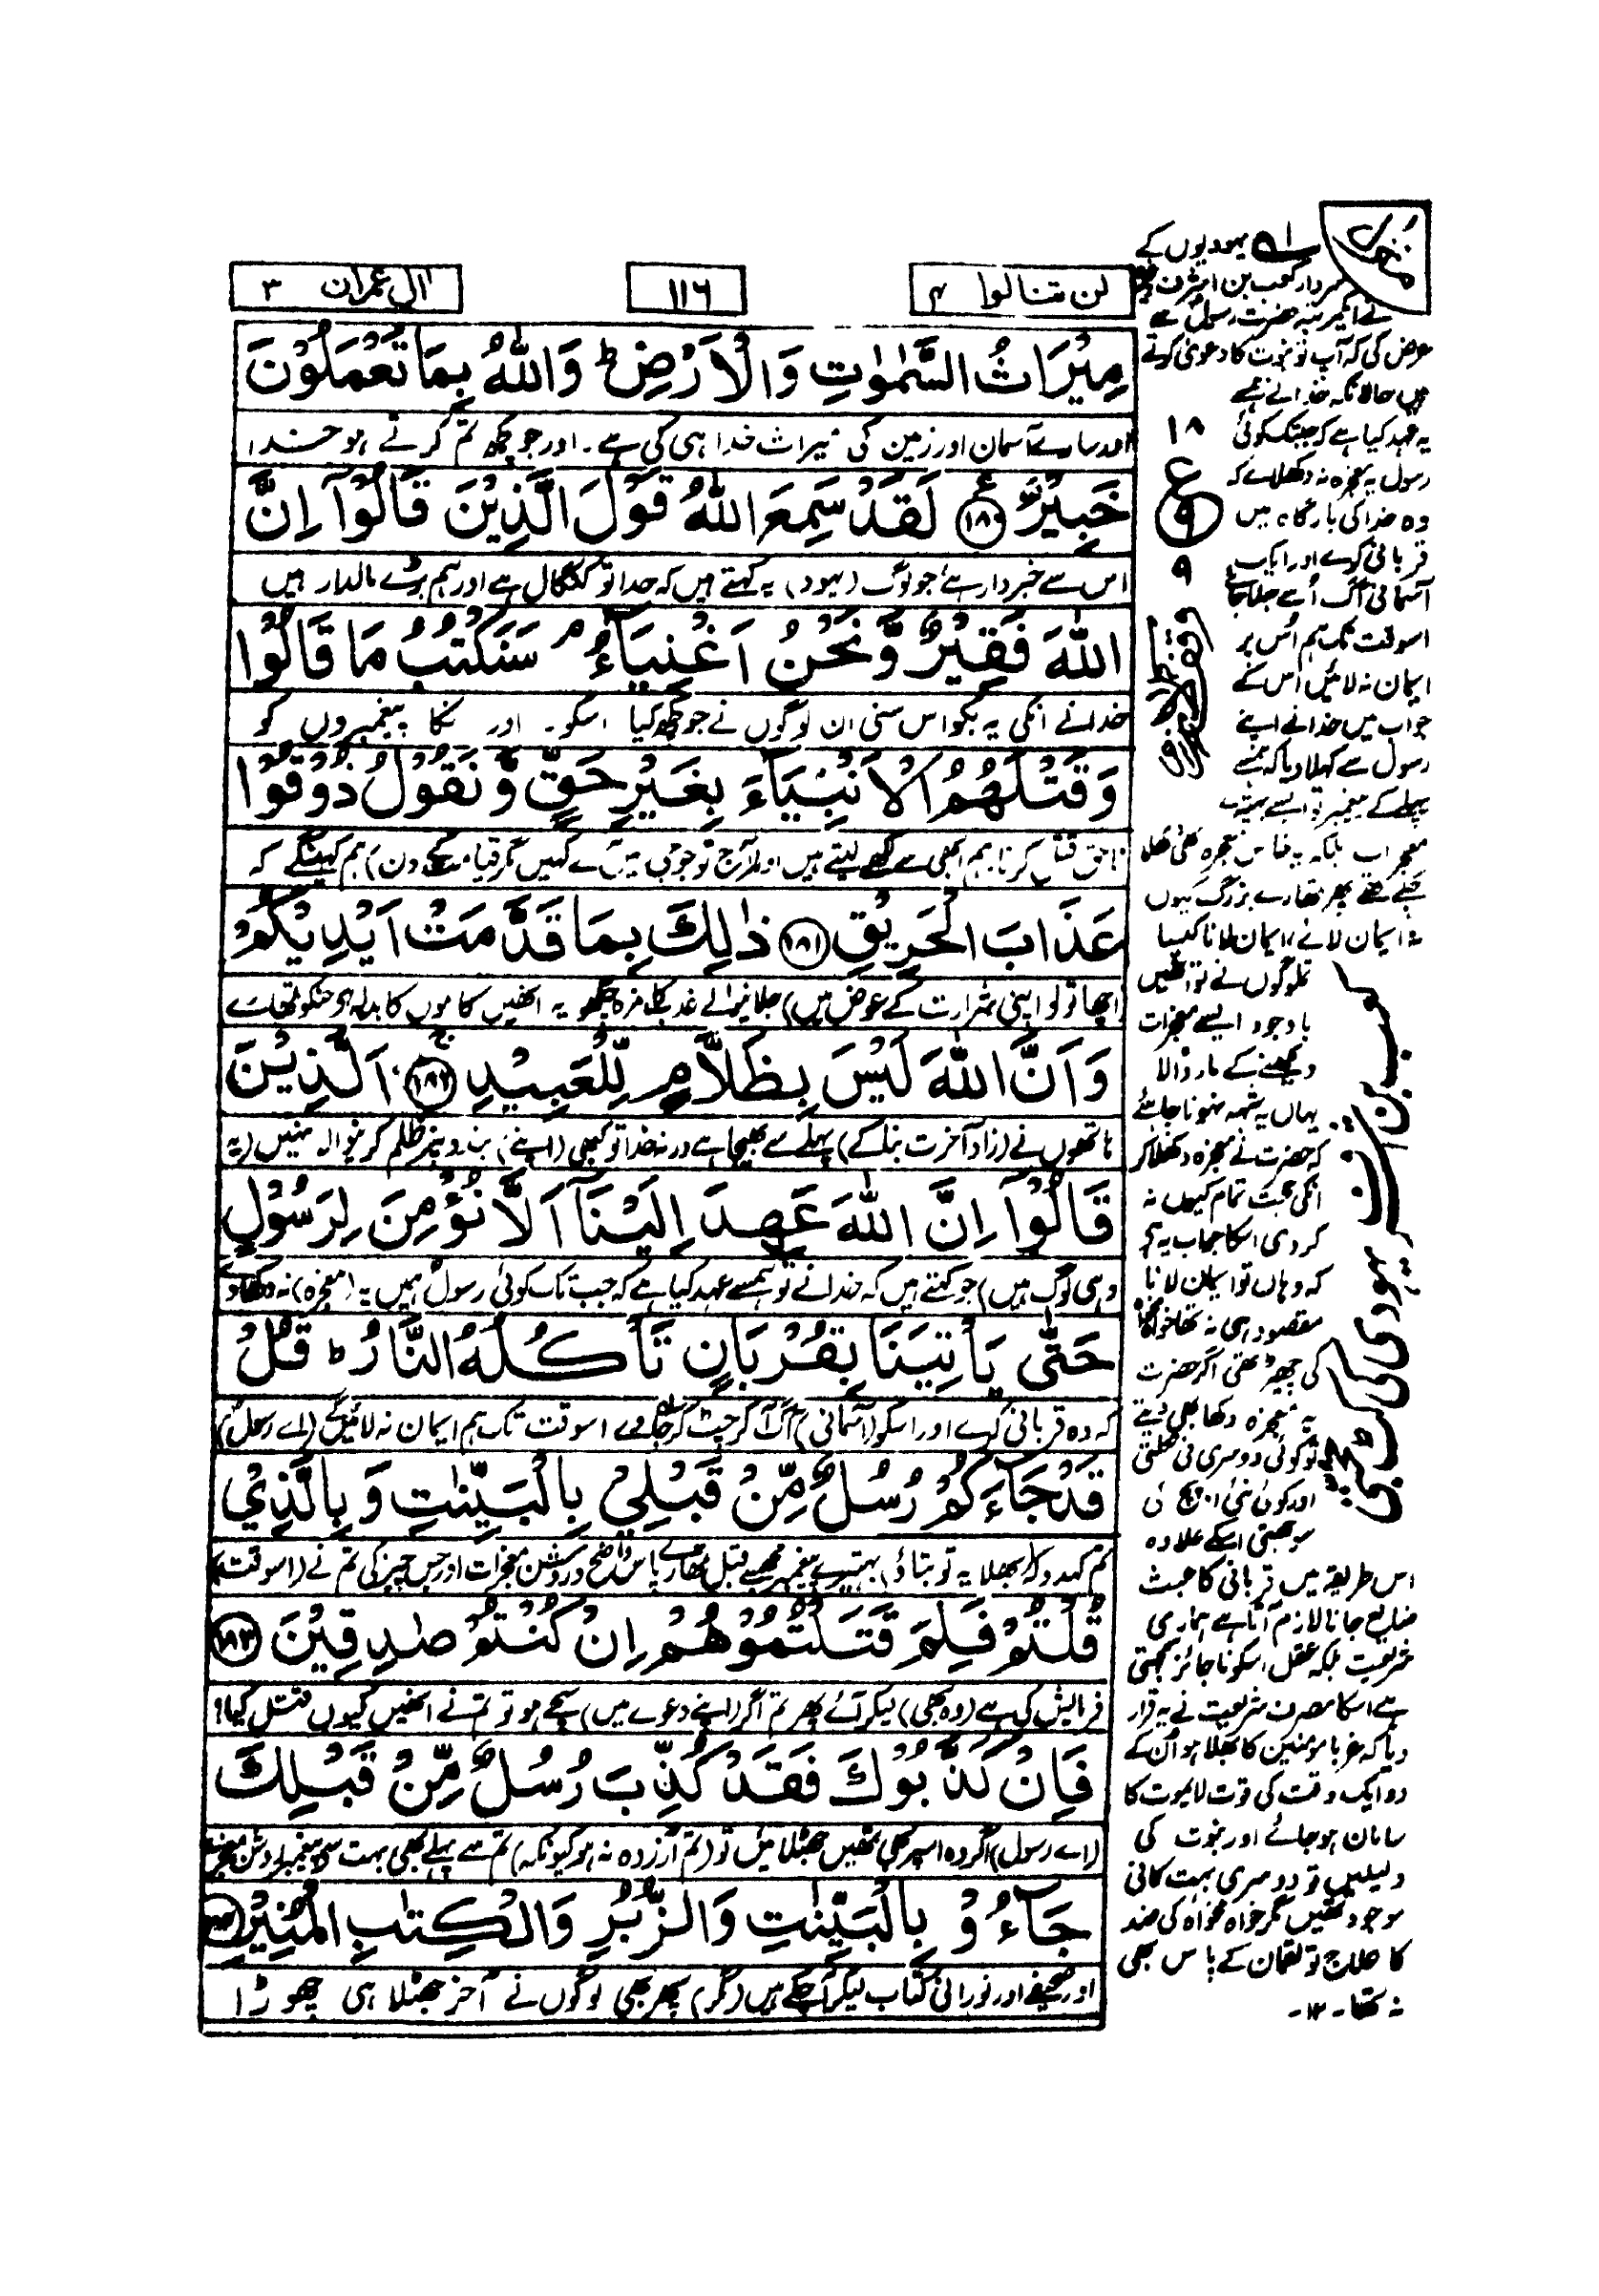 لن تنالوا ۴
۱۱۶
اٰل عمران ۳
مِيْرَاثُ السَّمٰوٰتِ وَالْاَرْضِ ؕ وَاللّٰهُ بِمَا تَعْمَلُوْنَ
اور سارے آسمان اور زمین کی میراث خدا ہی کی ہے۔ اور جو کچھ تم کرتے ہو خدا
خَبِيْرٌ ۱۸۰ لَقَدْ سَمِعَ اللّٰهُ قَوْلَ الَّذِيْنَ قَالُوْٓا اِنَّ
اس سے خبردار ہے جو لوگ (یہود) یہ کہتے ہیں کہ خدا تو کنگال ہے اور ہم بڑے مالدار ہیں
اللّٰهَ فَقِيْرٌ وَّنَحْنُ اَغْنِيَآءُ ۘ سَنَكْتُبُ مَا قَالُوْا
خدا نے انکی یہ بکواس سنی ان لوگوں نے جو کچھ کیا اسکو۔ اور انکا پیغمبروں کو
وَقَتْلَهُمُ الْاَنْۢبِيَآءَ بِغَيْرِ حَقٍّ وَّنَقُوْلُ ذُوْقُوْا
ناحق قتل کرنا ہم ابھی سے لکھے لیتے ہیں اور (آج تو جو جی میں آئے کہیں مگر قیامت کے دن) ہم کہینگے کہ
عَذَابَ الْحَرِيْقِ ۱۸۱ ذٰلِكَ بِمَا قَدَّمَتْ اَيْدِيْكُمْ
اچھا تو لو (اپنی شرارت کے عوض میں) جلانیوالے عذاب کا مزہ چکھو یہ انھیں کاموں کا بدلہ ہے جنکو تمھارے
وَاَنَّ اللّٰهَ لَيْسَ بِظَلَّامٍ لِّلْعَبِيْدِ ۱۸۲ اَلَّذِيْنَ
ہاتھوں نے (زاد آخرت بنا کے) پہلے سے بھیجا ہے ورنہ خدا تو کبھی (اپنے) بندونپر ظلم کرنیوالا نہیں (یہ
قَالُوْٓا اِنَّ اللّٰهَ عَهِدَ اِلَيْنَآ اَلَّا نُؤْمِنَ لِرَسُوْلٍ
وہی لوگ ہیں) جو کہتے ہیں کہ خدا نے تو ہمسے عہد کیا ہے کہ جب تک کوئی رسول ہمیں یہ (معجزہ) نہ دکھاوے
حَتّٰى يَاْتِيَنَا بِقُرْبَانٍ تَاْكُلُهُ النَّارُ ؕ قُلْ
کہ وہ قربانی کرے اور اسکو (آسمانی) آگ آکر چٹ کر جاوے اسوقت تک ہم ایمان نہ لائینگے (اے رسول)
قَدْ جَآءَكُمْ رُسُلٌ مِّنْ قَبْلِيْ بِالْبَيِّنٰتِ وَبِالَّذِيْ
تم کہدو کہ (بھلا یہ تو بتاؤ) بہتیرے پیغمبر مجھسے قبل تمھارے پاس واضح و روشن معجزات اور جس چیز کی تم نے (اسوقت)
قُلْتُمْ فَلِمَ قَتَلْتُمُوْهُمْ اِنْ كُنْتُمْ صٰدِقِيْنَ ۱۸۳
فرمایش کی ہے (وہ بھی) لیکر آئے پھر تم اگر (اپنے دعوے میں) سچے ہو تو تم نے انھیں کیوں قتل کیا؟
فَاِنْ كَذَّبُوْكَ فَقَدْ كُذِّبَ رُسُلٌ مِّنْ قَبْلِكَ
(اے رسول) اگر وہ اسپر بھی تمھیں جھٹلائیں تو (تم آزردہ نہ ہو کیونکہ) تم سے پہلے بھی بہت سے پیغمبر روشن معجزے
جَآءُوْ بِالْبَيِّنٰتِ وَالزُّبُرِ وَالْكِتٰبِ الْمُنِيْرِ
اور صحیفے اور نورانی کتاب لیکر آچکے ہیں (مگر) پھر بھی لوگوں نے آخر جھٹلا ہی چھوڑا
منزل
۱ یہودیوں کے
سردار کعب بن اشرف
نے ایکمرتبہ حضرت رسول سے
عرض کی کہ آپ تو نبوت کا دعویٰ کرتے
ہیں حالانکہ خدا نے ہمسے
یہ عہد کیا ہے کہ جبتک کوئی
رسول یہ معجزہ نہ دکھلائے کہ
وہ خدا کی بارگاہ میں
قربانی کرے اور ایک
آسمانی آگ اُسے جلا جائے
اسوقت تک ہم اُس پر
ایمان نہ لائیں اس کے
جواب میں خدا نے اپنے
رسول سے کہلا دیا کہ ہمسے
پہلے کے پیغمبر ایسے بہت
معجزات بلکہ یہ خاص معجزہ بھی دکھلا
چکے تھے پھر تمھارے بزرگ کیوں
نہ ایمان لائے، ایمان لانا کیسا
تملوگوں نے تو انھیں
باوجود ایسے معجزات
دیکھنے کے مار ڈالا
یہاں یہ شبہہ نہونا چاہئے
کہ حضرت نے معجزہ دکھلا کر
انکی حجت تمام کیوں نہ
کر دی اسکا جواب یہ ہے
کہ وہاں تو ایمان لانا
مقصود ہی نہ تھا خوامخواہ
کی چھیڑ تھی اگر حضرت
یہ معجزہ دکھا بھی دیتے
تو کوئی دوسری نکلتی
اور کوئی نئی
سوجھتی اسکے علاوہ
اس طریقہ میں قربانی کا عبث
ضایع جانا لازم آتا ہے ہماری
شریعت بلکہ عقل اسکو ناجائز سمجھتی
ہے اسکا مصرف شریعت نے یہ قرار
دیا کہ غربا مومنین کا بھلا ہو اُن کے
دو ایک وقت کی قوت لایموت کا
سامان ہو جائے اور نبوت کی
دلیلیں تو دوسری بہت کافی
موجود تھیں مگر خواہ مخواہ کی ضد
کا علاج تو لقمان کے پاس بھی
نہ تھا۔ ۱۲۔
۱۸
ع
۹
۹
کعب بن اشرف یہودی کی